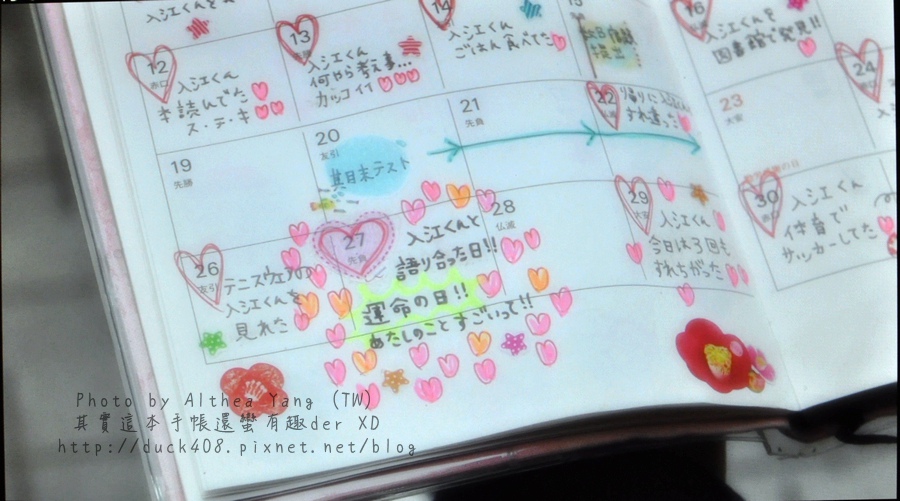 入江くんを
12
赤口
入江くん
本読んでた
ス・テ・キ
13
入江くん
何やら考え事...
カッコイイ
14
入江くん
ごはん食べてた
15
16
入江くん
図書館で発見!!
19
先勝
20
友引
期末テスト
21
先負
22
帰りに入江くん
すれ違った
23
大安
24
26
友引
テニスウェアの
入江くんを
見れた
27
先負
入江くんと
語り合った日!!
運命の日!!
あたしのことすごいって!!
28
仏滅
29
大安
入江くん
今日は3回も
すれちがった
30
入江くん
体育で
サッカーしてた
Photo by Althea Yang (TW)
其實這本手帳還蠻有趣der XD
http://duck408.pixnet.net/blog